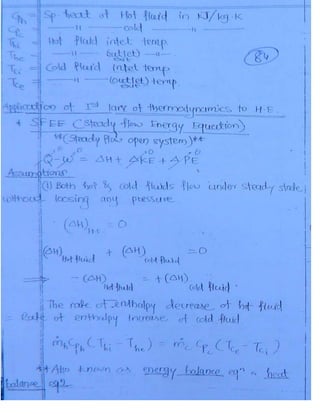 Cph = Sp. heat of Hot fluid in KJ/kg-K
Cpc = —〃— cold —〃—
Thi = Hot fluid inlet temp.
The = —〃— outlet) —〃— exit
Tci = Cold fluid inlet temp.
Tce = —〃— (outlet) temp. exit
84
Application of Ist law of thermodynamics to H.E.
* SFEE (Steady flow Energy Equation)
**(Steady flow open system)**
Q - W = ΔH + ΔKE + ΔPE
Assumptions
(1) Both hot & cold fluids flow under steady state,
without loosing any pressure
(ΔH) = 0
(ΔH) Hot fluid + (ΔH) cold fluid = 0
⟹ - (ΔH) Hot fluid = + (ΔH) cold fluid.
The rate of Enthalpy decrease of hot fluid
= Rate of enthalpy increase of cold fluid
ṁh Cph (Thi - The) = ṁc Cpc (Tce - Tci)
** Also known as energy balance eqn or heat
balance eqn.